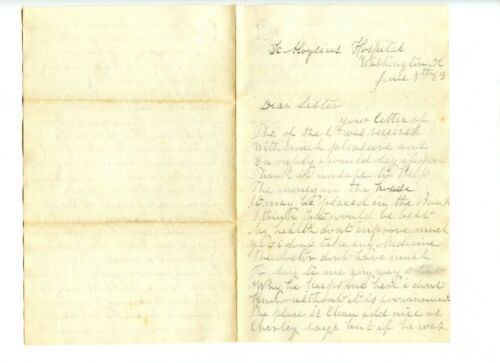 St Aloysius Hospital
Washington DC
June 8th 63
Dear Sister
your letter of
the of the was received
With much pleasure and
in reply I would say if you
think it unsafe to keep
The money in the house
It may be placed in the Bank
I think that would be best
My health dont improve much
yet I dont take any Medicine
The doctor dont have much
to say to me any way
Why he keeps me here I dont
know without it is
The place is Clean and nice as
Charley says but if he was